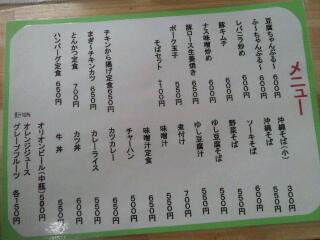 メニュー
豆腐ちゃんぷるー 600円
ふーちゃんぷるー 600円
レバニラ炒め 600円
豚キムチ 600円
ナス味噌炒め 600円
豚ロース生姜焼き 650円
ポーク玉子 550円
そばセット +100円
チキンから揚げ定食 650円
まぎ〜チキンカツ 650円
とんかつ定食 700円
ハンバーグ定食 650円
沖縄そば(小) 300円
沖縄そば 500円
ソーキそば 600円
野菜そば 550円
ゆし豆腐そば 550円
ゆし豆腐汁 550円
煮付け 700円
味噌汁 550円
味噌汁定食 650円
チャーハン 550円
カツカレー 650円
カレーライス 550円
カツ丼 600円
牛丼 550円
オリオンビール(中瓶) 500円
オレンジジュース
グレープフルーツ 各150円